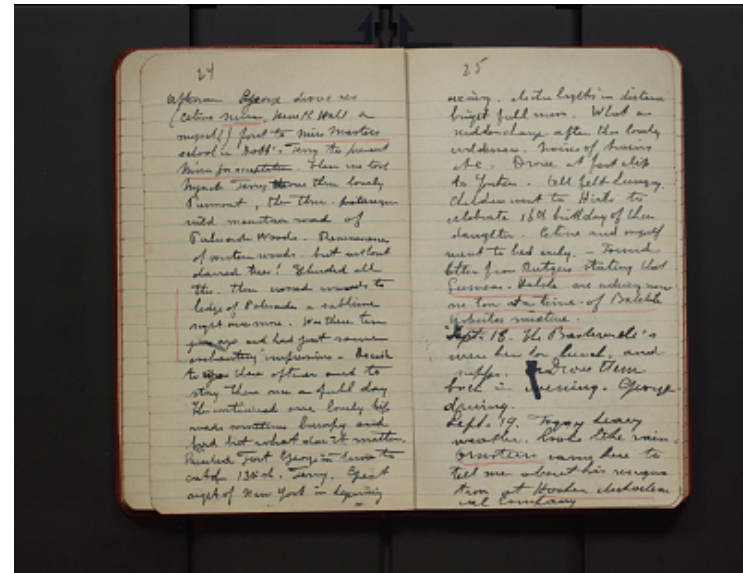 24
afternoon George drove us
(Celine Nina, Heneth Wall &
myself) first to Miss Masters
school in Dobb's Ferry to present
Nina for acceptation. Then we took
Nyack Ferry thence thru lovely
Piermont, then thru picturesque
wild mountain road of
Palisade Woods. Reminiscences
of western woods. but without
charred trees! Secluded all
this. Then crossed woods to
ledge of Palisades a sublime
sight once more. Was there ten
years ago and had just same
enchanting impressions - Decide
to go there oftener and to
stay there once a full day
We continued over lovely
roads sometimes bumpy and
bad but what does it matter.
Reached Fort George in time to
catch 130th St. Ferry. Great
sight of New York in beginning
25
evening. electric lights in distance
bright full moon. What a
sudden change after this lovely
wilderness. Noises of trains
etc. Drove at fast clip
to Yonkers. All felt hungry.
Children went to Hirsh to
celebrate 16th birthday of their
daughter. Celine and myself
went to bed early. - Found
letter from Rutgers stating that
are ordering now
one ton at a time of Bakelite
mixture.
Sept. 18. The
were here for lunch. and
supper. Drove them
back in evening. George
driving.
Sept. 19. Foggy heavy
weather. looks like rain.
came here to
tell me about his resigna
tion at Hooker electrochem
ical Company